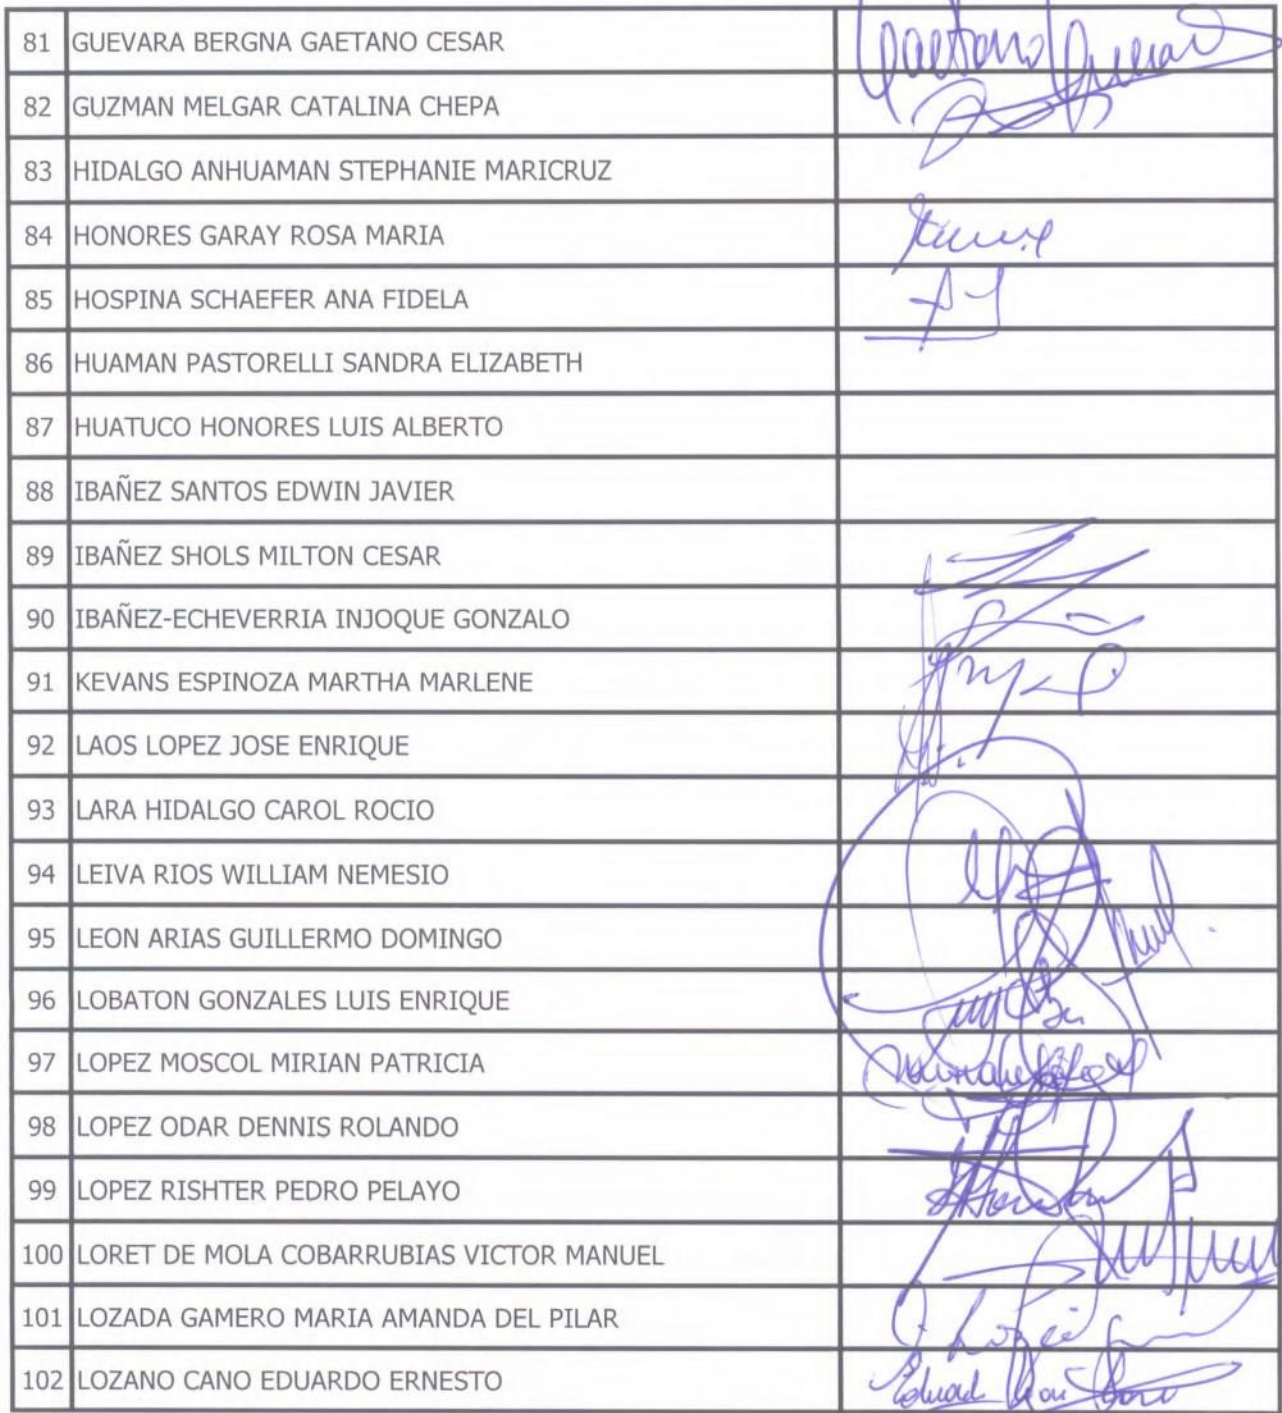 81 GUEVARA BERGNA GAETANO CESAR Gaetano Guevara
82 GUZMAN MELGAR CATALINA CHEPA
83 HIDALGO ANHUAMAN STEPHANIE MARICRUZ
84 HONORES GARAY ROSA MARIA
85 HOSPINA SCHAEFER ANA FIDELA
86 HUAMAN PASTORELLI SANDRA ELIZABETH
87 HUATUCO HONORES LUIS ALBERTO
88 IBAÑEZ SANTOS EDWIN JAVIER
89 IBAÑEZ SHOLS MILTON CESAR
90 IBAÑEZ-ECHEVERRIA INJOQUE GONZALO
91 KEVANS ESPINOZA MARTHA MARLENE
92 LAOS LOPEZ JOSE ENRIQUE
93 LARA HIDALGO CAROL ROCIO
94 LEIVA RIOS WILLIAM NEMESIO
95 LEON ARIAS GUILLERMO DOMINGO
96 LOBATON GONZALES LUIS ENRIQUE
97 LOPEZ MOSCOL MIRIAN PATRICIA
98 LOPEZ ODAR DENNIS ROLANDO
99 LOPEZ RISHTER PEDRO PELAYO
100 LORET DE MOLA COBARRUBIAS VICTOR MANUEL
101 LOZADA GAMERO MARIA AMANDA DEL PILAR
102 LOZANO CANO EDUARDO ERNESTO